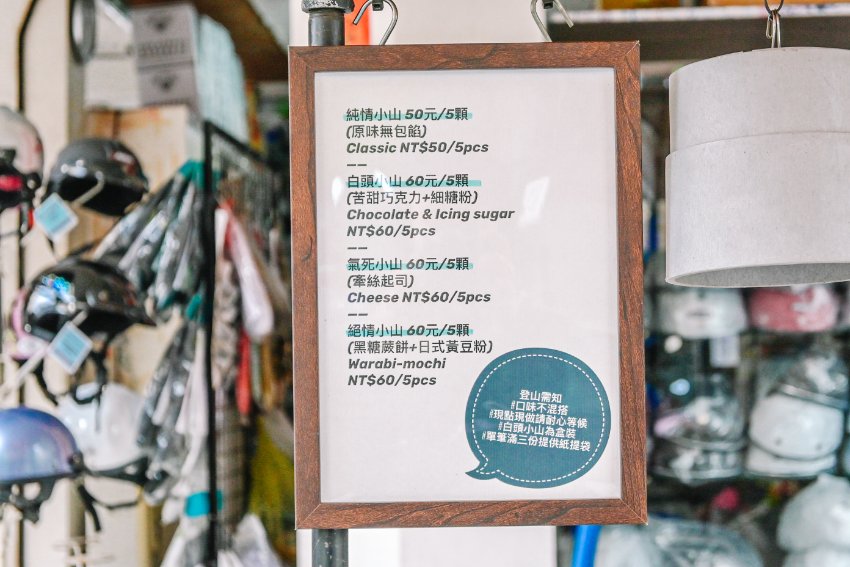 純情小山 50元/5顆
(原味無包餡)
Classic NT$50/5pcs
——
白頭小山 60元/5顆
(苦甜巧克力+細糖粉)
Chocolate & Icing sugar
NT$60/5pcs
——
氣死小山 60元/5顆
(牽絲起司)
Cheese NT$60/5pcs
——
絕情小山 60元/5顆
(黑糖蕨餅+日式黃豆粉)
Warabi-mochi
NT$60/5pcs
登山需知
#口味不混搭
#現點現做請耐心等候
#白頭小山為盒裝
#單筆滿三份提供紙提袋